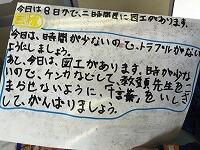 今日は8日かで、二時間目に図工があります。
今日は、時間が少ないので、トラブルがない
ようにしましょう。
あと、今日は、図工があります。時が少な
いので、ケンカなどして、教員先生をこ
まらせないように、「言葉」をいしき
して、がんばりましょう。